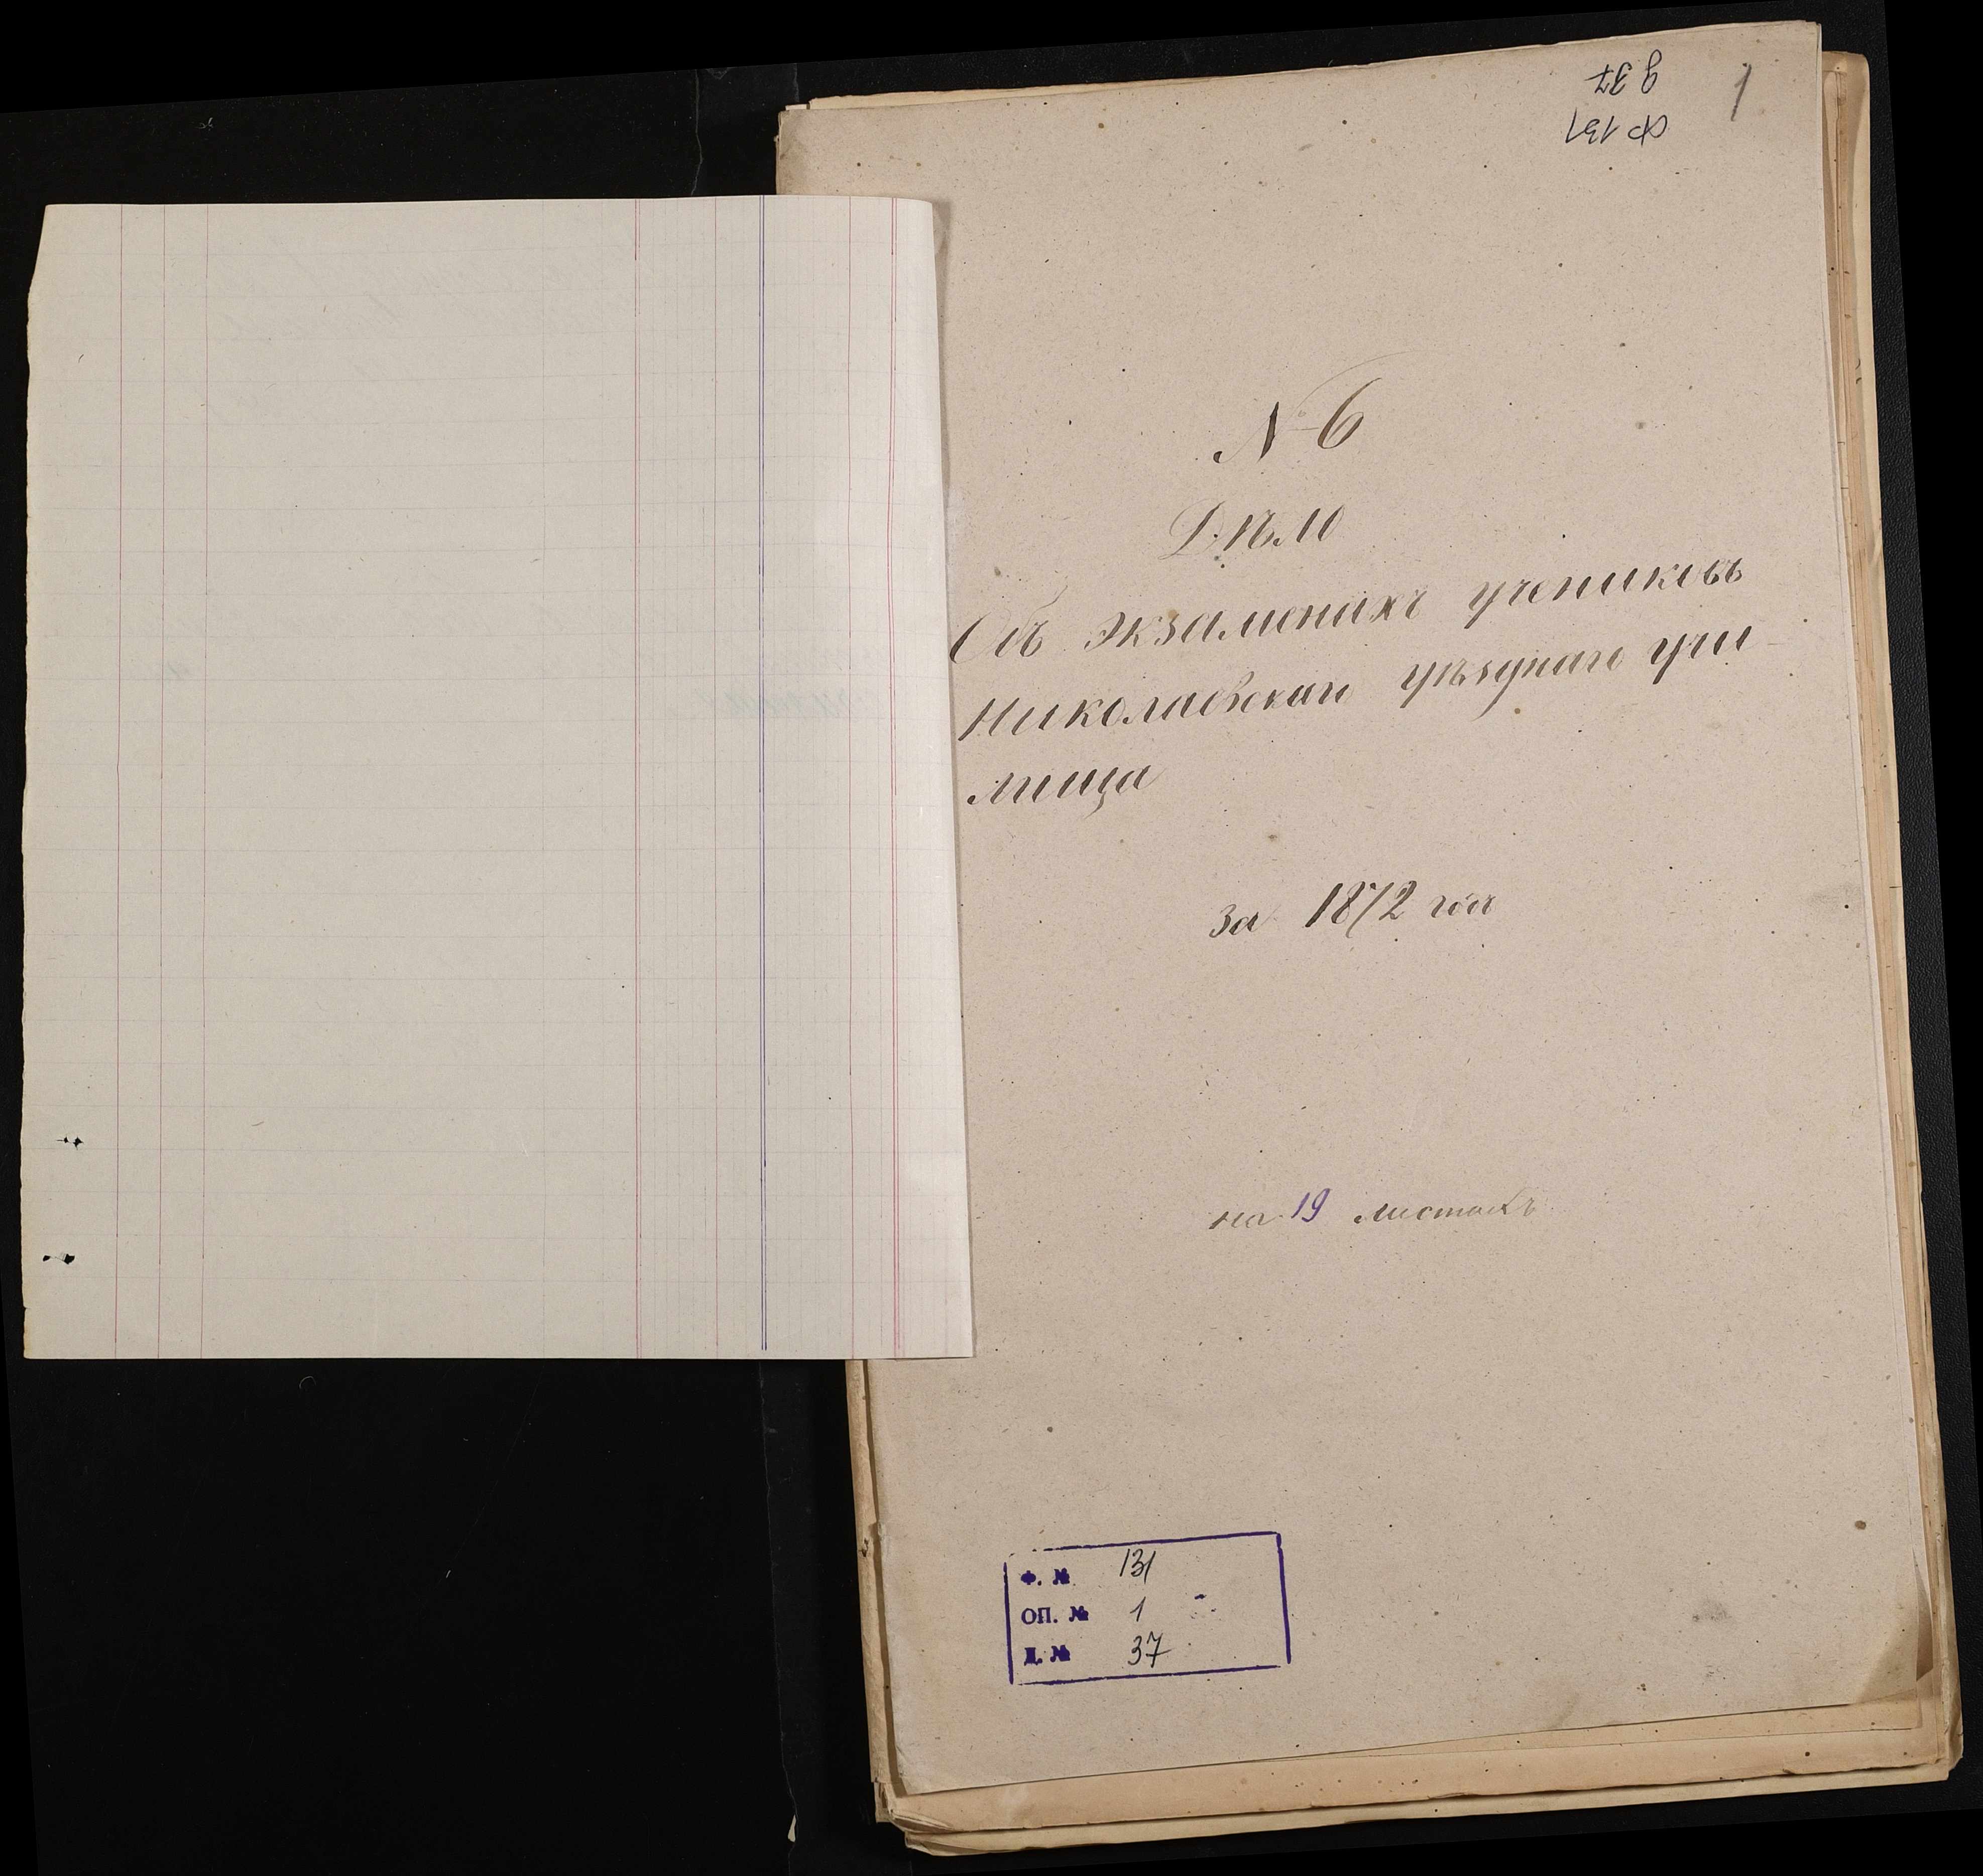 1
ф 131
д 37
N 6
Дѣло
Объ экзаменахъ учениковъ
Николаевскаго уѣзднаго учи-
лища
за 1872 год
на 19 листахъ
Ф. № 131
ОП. № 1
Д. № 37